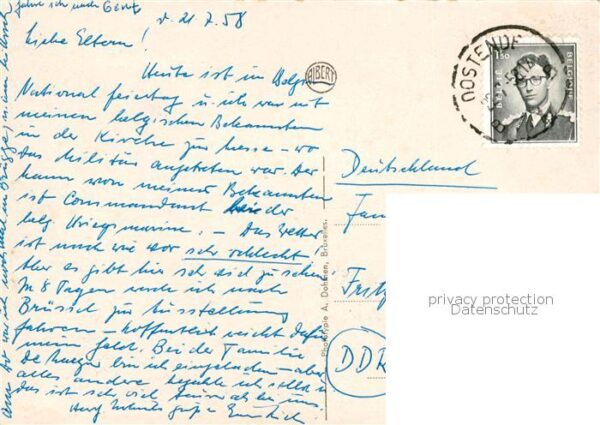 fahre ich nach Gent
d. 21.7.58
Liebe Eltern!
Heute ist im Belg.
National feiertag u. ich war mit
meinen belgischen Bekannten
in der Kirche zur Messe – wo
das Militär angetreten war. Der
Mann von meiner Bekannten
ist Commandant bei der
belg. Kriegsmarine. – Das Wetter
ist nach wie vor sehr schlecht
Aber es gibt hier sich zu sehen
In 8 Tagen werde ich nach
Brüssel zur Ausstellung
fahren – hoffentlich reicht dafür
mein Geld. Bei der Familie
De bin ich eingeladen – aber
alles andere bezahle ich selbst u.
das ist sehr viel teurer als bei uns.
Herzl.
ALBERT
OOSTENDE
1,50
BELGIE
BELGIQUE
Phototypie A. Dohmen, Bruxelles.
Deutschland
Fam
DDR
privacy protection
Datenschutz